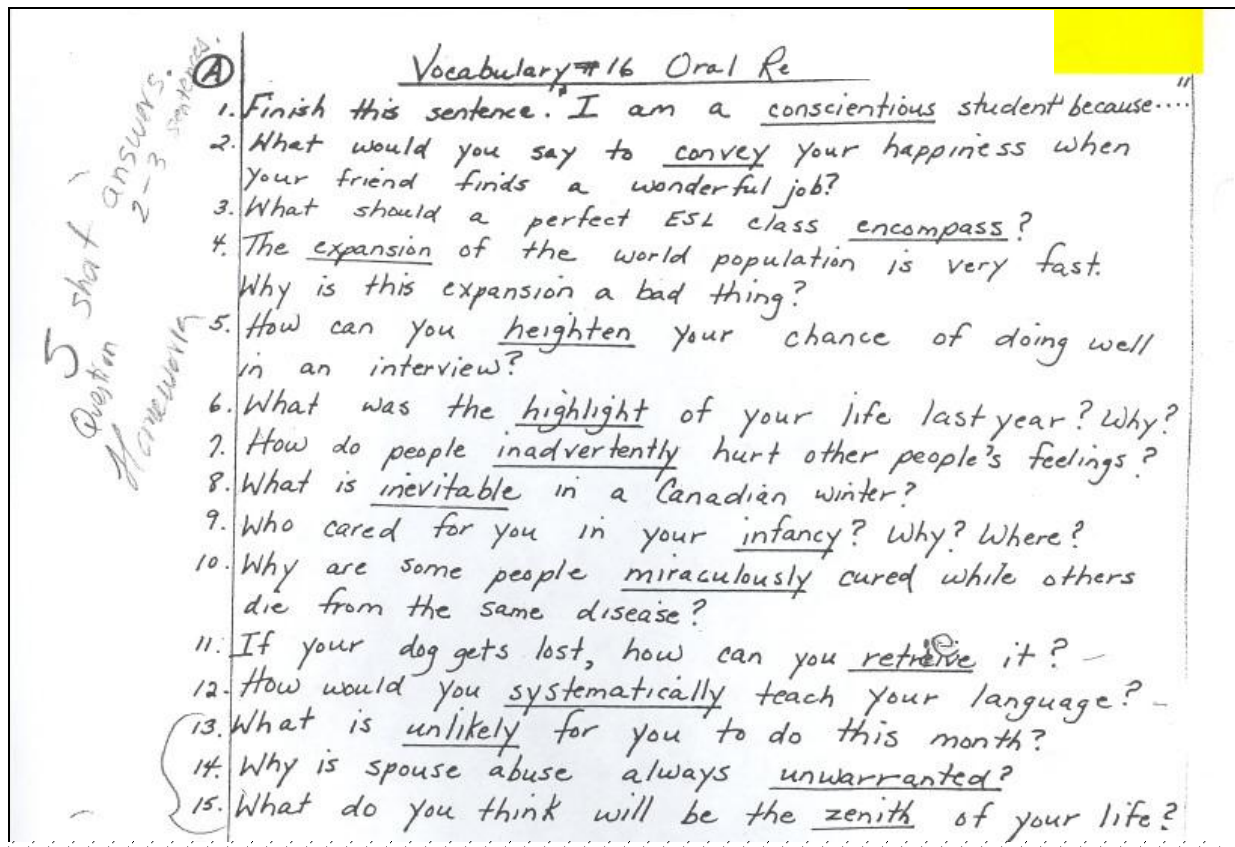 5 short answers.
2-3 sentences.
Question
Homework
(A)
Vocabulary #16 Oral Re
1. Finish this sentence. "I am a conscientious student because...."
2. What would you say to convey your happiness when
your friend finds a wonderful job?
3. What should a perfect ESL class encompass?
4. The expansion of the world population is very fast.
Why is this expansion a bad thing?
5. How can you heighten your chance of doing well
in an interview?
6. What was the highlight of your life last year? Why?
7. How do people inadvertently hurt other people's feelings?
8. What is inevitable in a Canadian winter?
9. Who cared for you in your infancy? Why? Where?
10. Why are some people miraculously cured while others
die from the same disease?
11. If your dog gets lost, how can you retrieve it? -
12. How would you systematically teach your language? -
13. What is unlikely for you to do this month?
14. Why is spouse abuse always unwarranted?
15. What do you think will be the zenith of your life?